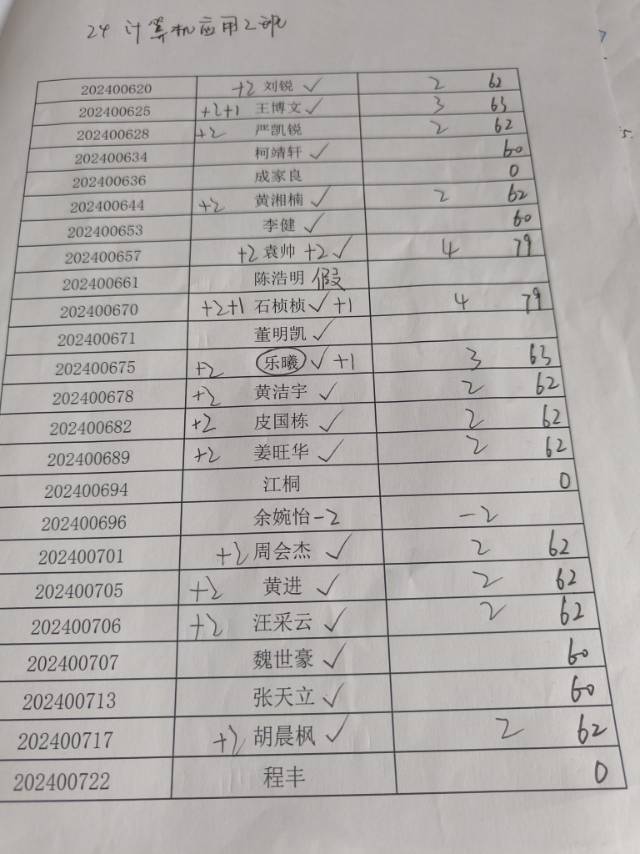 24计算机应用2班
202400620 +2 刘锐 ✓ 2 62
202400625 +2+1 王博文 ✓ 3 63
202400628 +2 严凯锐 2 62
202400634 柯靖轩 ✓ 60
202400636 成家良 0
202400644 +2 黄湘楠 ✓ 2 62
202400653 李健 ✓ 60
202400657 +2 袁帅 +2 ✓ 4 79
202400661 陈浩明 假
202400670 +2+1 石桢桢 ✓ +1 4 79
202400671 董明凯 ✓
202400675 +2 乐曦 ✓ +1 3 63
202400678 +2 黄洁宇 ✓ 2 62
202400682 +2 皮国栋 ✓ 2 62
202400689 +2 姜旺华 ✓ 2 62
202400694 江桐 0
202400696 余婉怡 -2 -2
202400701 +2 周会杰 ✓ 2 62
202400705 +2 黄进 ✓ 2 62
202400706 +2 汪采云 ✓ 2 62
202400707 魏世豪 ✓ 60
202400713 张天立 ✓ 60
202400717 +2 胡晨枫 ✓ 2 62
202400722 程丰 0